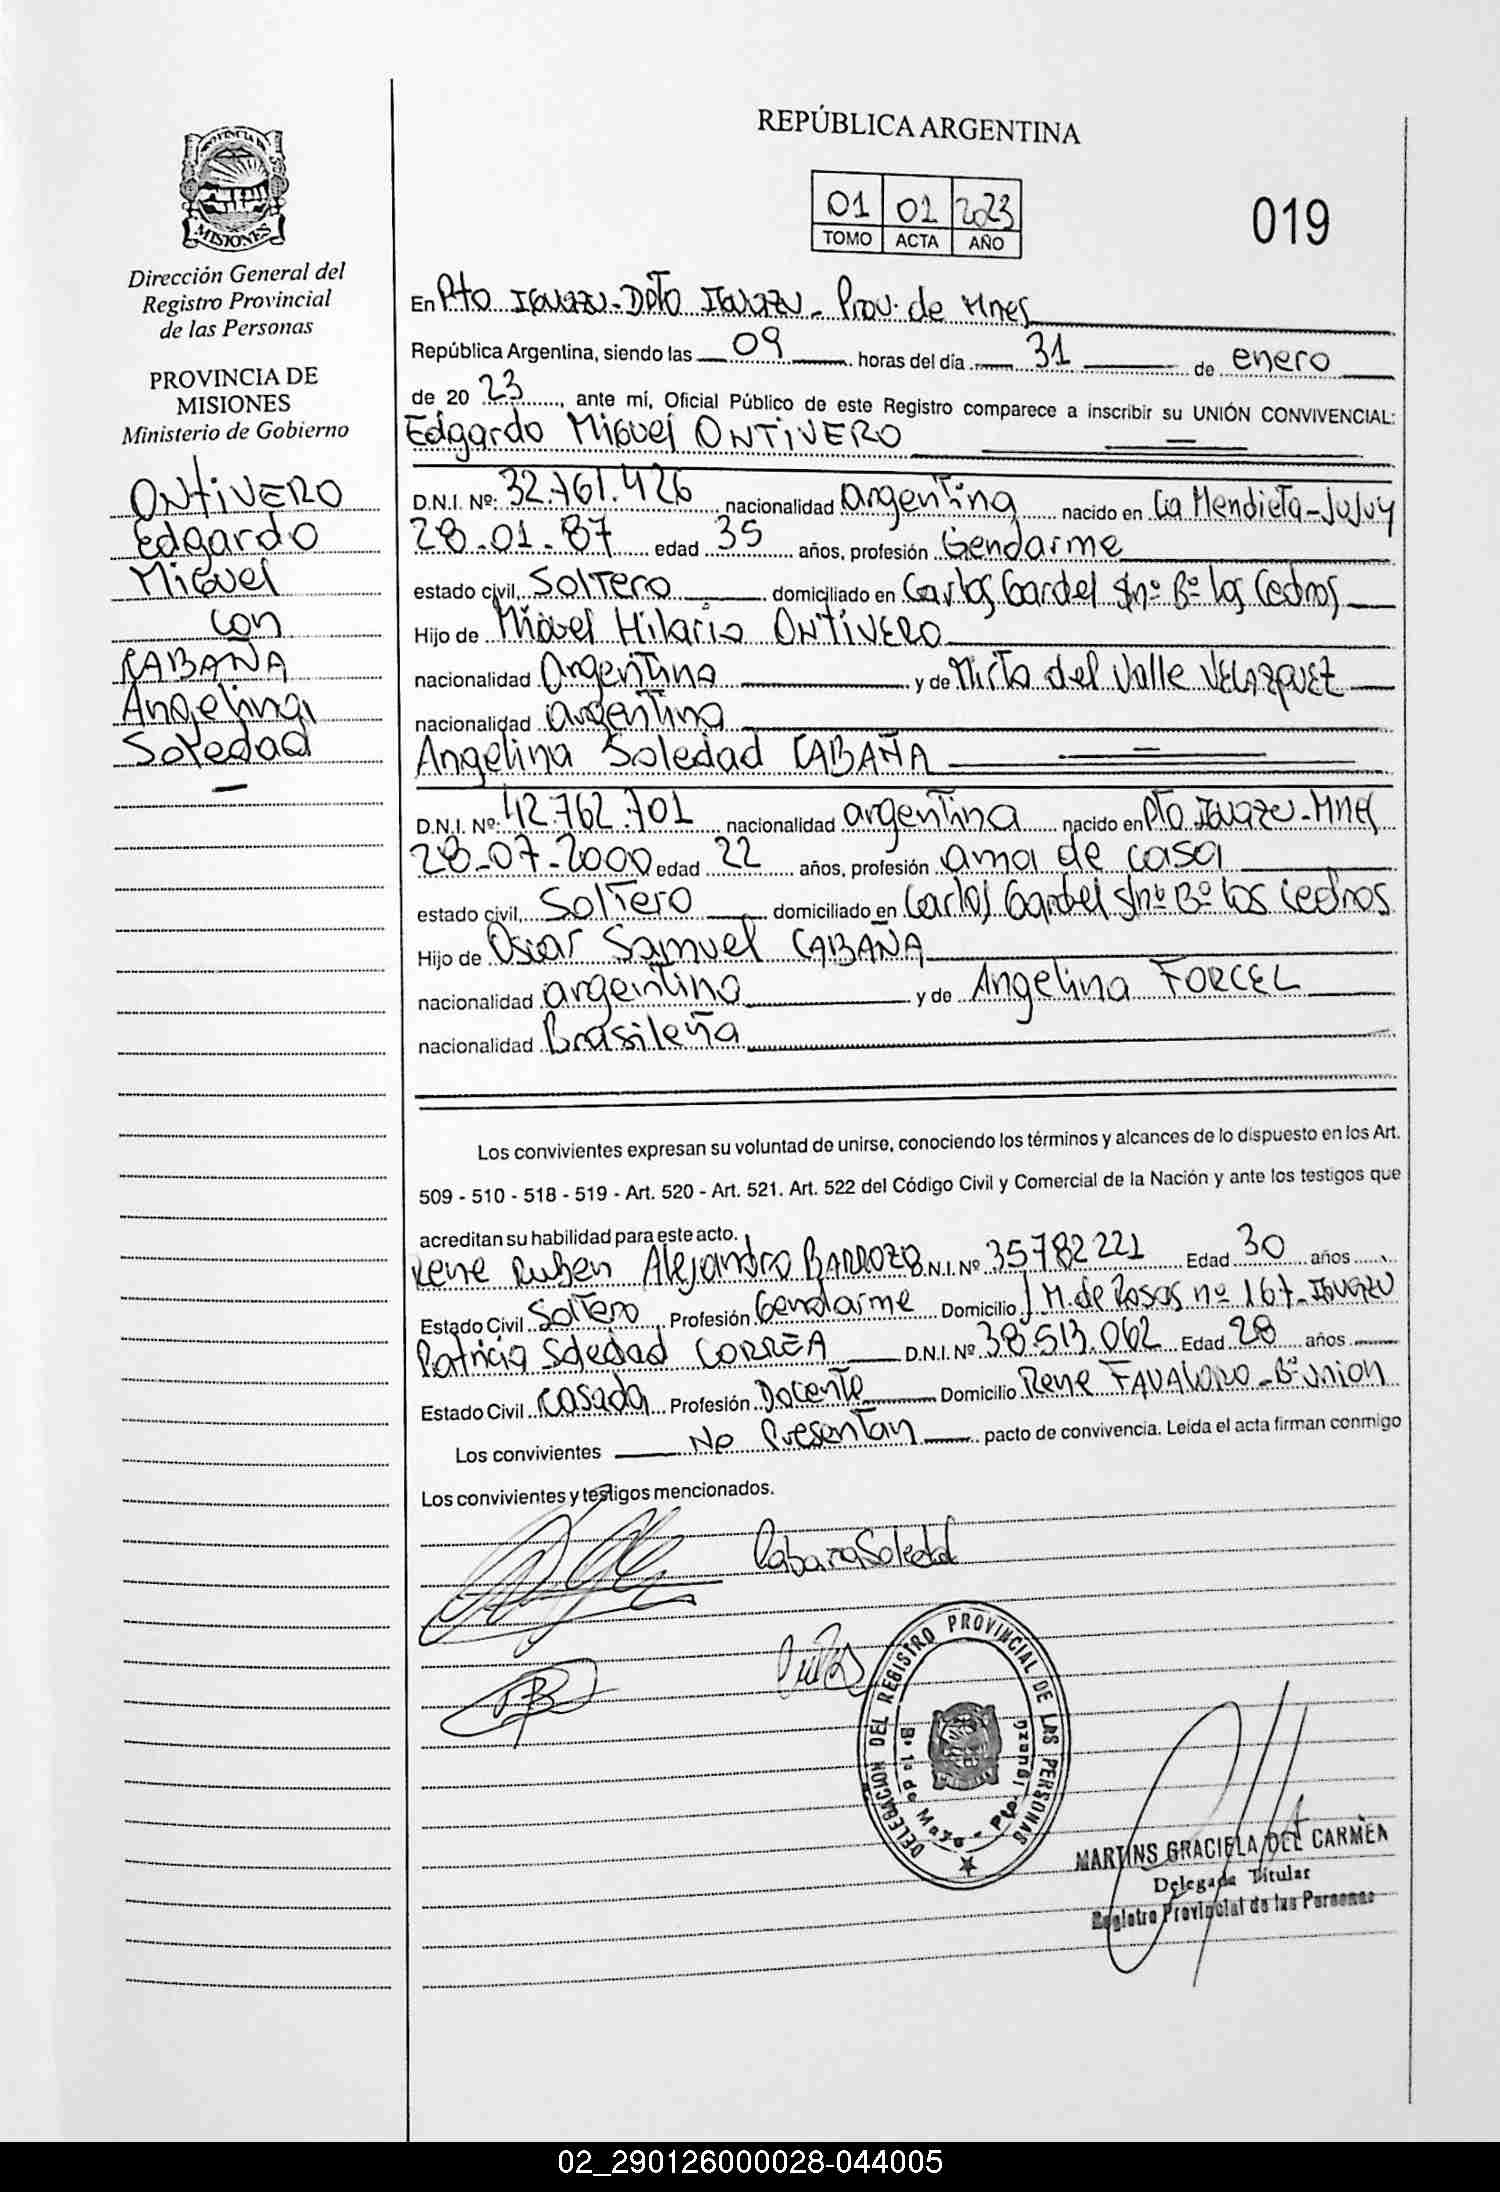 REPÚBLICA ARGENTINA
01 01 2023
TOMO ACTA AÑO
019
PROVINCIA DE
MISIONES
Dirección General del
Registro Provincial
de las Personas
PROVINCIA DE
MISIONES
Ministerio de Gobierno
ONTIVERO
Edgardo
Miguel
con
CABAÑA
Angelina
Soledad
En Pto IGUAZU-Dpto IGUAZU- Prov. de Mnes
República Argentina, siendo las 09 horas del día 31 de enero
de 20 23, ante mí, Oficial Público de este Registro comparece a inscribir su UNIÓN CONVIVENCIAL:
Edgardo Miguel ONTIVERO
D.N.I. Nº: 32.761.426 nacionalidad argentina nacido en La Mendieta-Jujuy
28-01-87 edad 35 años, profesión Gendarme
estado civil, Soltero domiciliado en Carlos Gardel S/nº Bº los Cedros
Hijo de Miguel Hilario ONTIVERO
nacionalidad Argentina y de Mirta del Valle VELAZQUEZ
nacionalidad argentina
Angelina Soledad CABAÑA
D.N.I. Nº: 42.762.701 nacionalidad argentina nacido en Pto IGUAZU-Mnes
28-07-2000 edad 22 años, profesión ama de casa
estado civil, Soltero domiciliado en Carlos Gardel S/nº Bº los Cedros
Hijo de Oscar Samuel CABAÑA
nacionalidad argentino y de Angelina FORCEL
nacionalidad Brasileña
Los convivientes expresan su voluntad de unirse, conociendo los términos y alcances de lo dispuesto en los Art.
509 - 510 - 518 - 519 - Art. 520 - Art. 521. Art. 522 del Código Civil y Comercial de la Nación y ante los testigos que
acreditan su habilidad para este acto.
Rene Ruben Alejandro BARROZO D.N.I. Nº 35782221 Edad 30 años
Estado Civil Soltero Profesión Gendarme Domicilio J M. de Rosas nº 167-IGUAZU
Patricia Soledad CORREA D.N.I. Nº 38.513.062 Edad 28 años
Estado Civil Casada Profesión Docente Domicilio Rene FAVALORO-Bº Union
Los convivientes No Presentan pacto de convivencia. Leída el acta firman conmigo
Los convivientes y testigos mencionados.
Cabaña Soledad
DELEGACION DEL REGISTRO PROVINCIAL DE LAS PERSONAS
Bº 1º de Mayo - Pto. Iguazú
MARTINS GRACIELA DEL CARMEN
Delegada Titular
Registro Provincial de las Personas
02_290126000028-044005